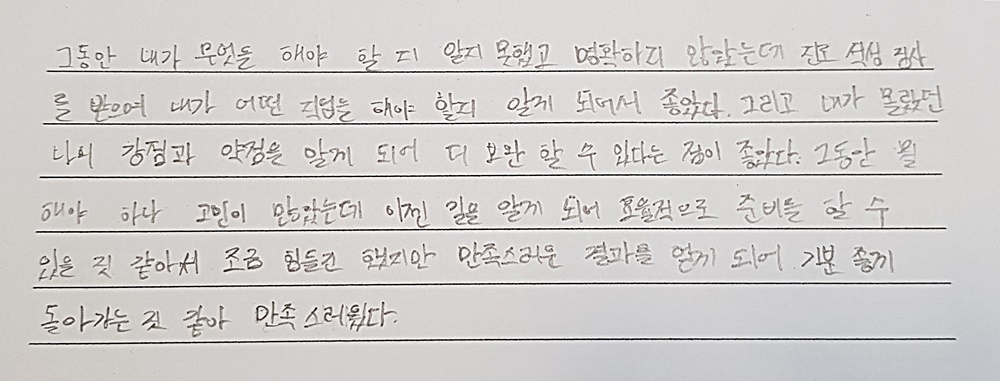 그동안 내가 무엇을 해야 할 지 알지 못했고 명확하지 않았는데 진로 적성 검사
를 받으며 내가 어떤 직업을 해야 할지 알게 되어서 좋았다. 그리고 내가 몰랐던
나의 강점과 약점을 알게 되어 더 보완 할 수 있다는 점이 좋았다. 그동안 뭘
해야 하나 고민이 많았는데 이젠 길을 알게 되어 효율적으로 준비를 할 수
있을 것 같아서 조금 힘들긴 했지만 만족스러운 결과를 얻게 되어 기분 좋게
돌아가는 것 같아 만족스러웠다.